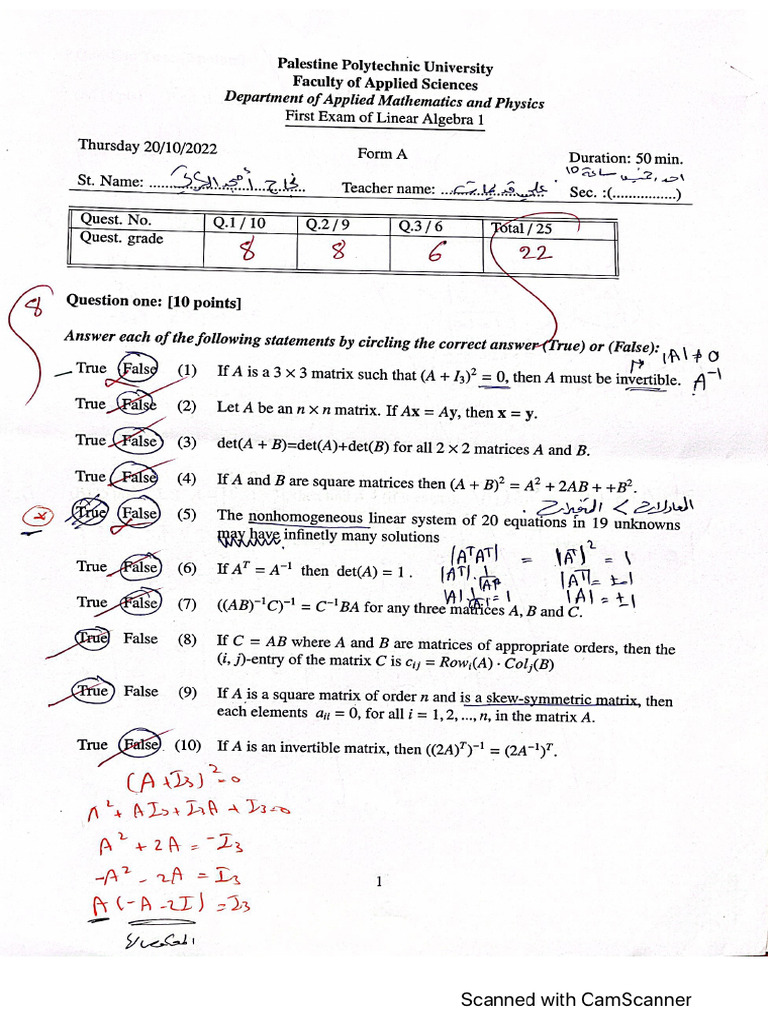 Palestine Polytechnic University
Faculty of Applied Sciences
Department of Applied Mathematics and Physics
First Exam of Linear Algebra 1
Thursday 20/10/2022
Form A
Duration: 50 min.
St. Name: ...............................
Teacher name: .......................
Sec. :(...............)
Quest. No. Q.1 / 10 Q.2 / 9 Q.3 / 6 Total / 25
Quest. grade 8 8 6 22
8 Question one: [10 points]
Answer each of the following statements by circling the correct answer (True) or (False): |A| ≠ 0
True False (1) If A is a 3 × 3 matrix such that (A + I₃)² = 0, then A must be invertible. A⁻¹
True False (2) Let A be an n × n matrix. If Ax = Ay, then x = y.
True False (3) det(A + B)=det(A)+det(B) for all 2 × 2 matrices A and B.
True False (4) If A and B are square matrices then (A + B)² = A² + 2AB + +B².
True False (5) The nonhomogeneous linear system of 20 equations in 19 unknowns
may have infinetly many solutions
|AᵀAᵀ| = |Aᵀ|² = 1
True False (6) If Aᵀ = A⁻¹ then det(A) = 1 .
|Aᵀ| = ±1
|A| = ±1
True False (7) ((AB)⁻¹C)⁻¹ = C⁻¹BA for any three matrices A, B and C.
True False (8) If C = AB where A and B are matrices of appropriate orders, then the
(i, j)-entry of the matrix C is cᵢⱼ = Rowᵢ(A) · Colⱼ(B)
True False (9) If A is a square matrix of order n and is a skew-symmetric matrix, then
each elements aᵢᵢ = 0, for all i = 1, 2, ..., n, in the matrix A.
True False (10) If A is an invertible matrix, then ((2A)ᵀ)⁻¹ = (2A⁻¹)ᵀ.
(A + I₃)² = 0
A² + AI₃ + I₃A + I₃ = 0
A² + 2A = -I₃
-A² - 2A = I₃
A (-A - 2I) = I₃
1
Scanned with CamScanner